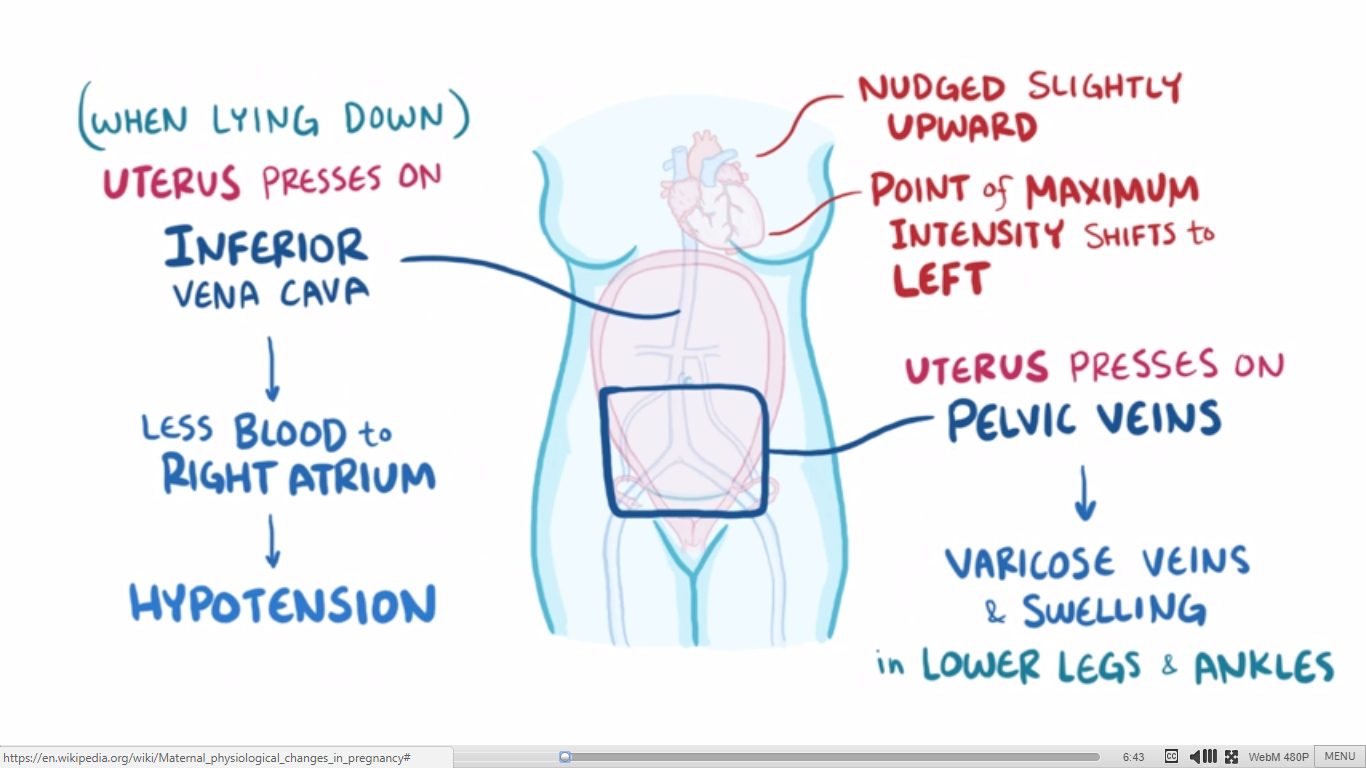 (WHEN LYING DOWN)
UTERUS PRESSES ON
INFERIOR
VENA CAVA
LESS BLOOD to
RIGHT ATRIUM
HYPOTENSION
NUDGED SLIGHTLY
UPWARD
POINT of MAXIMUM
INTENSITY SHIFTS to
LEFT
UTERUS PRESSES ON
PELVIC VEINS
VARICOSE VEINS
& SWELLING
in LOWER LEGS & ANKLES
https://en.wikipedia.org/wiki/Maternal_physiological_changes_in_pregnancy#
6:43 CC WebM 480P MENU